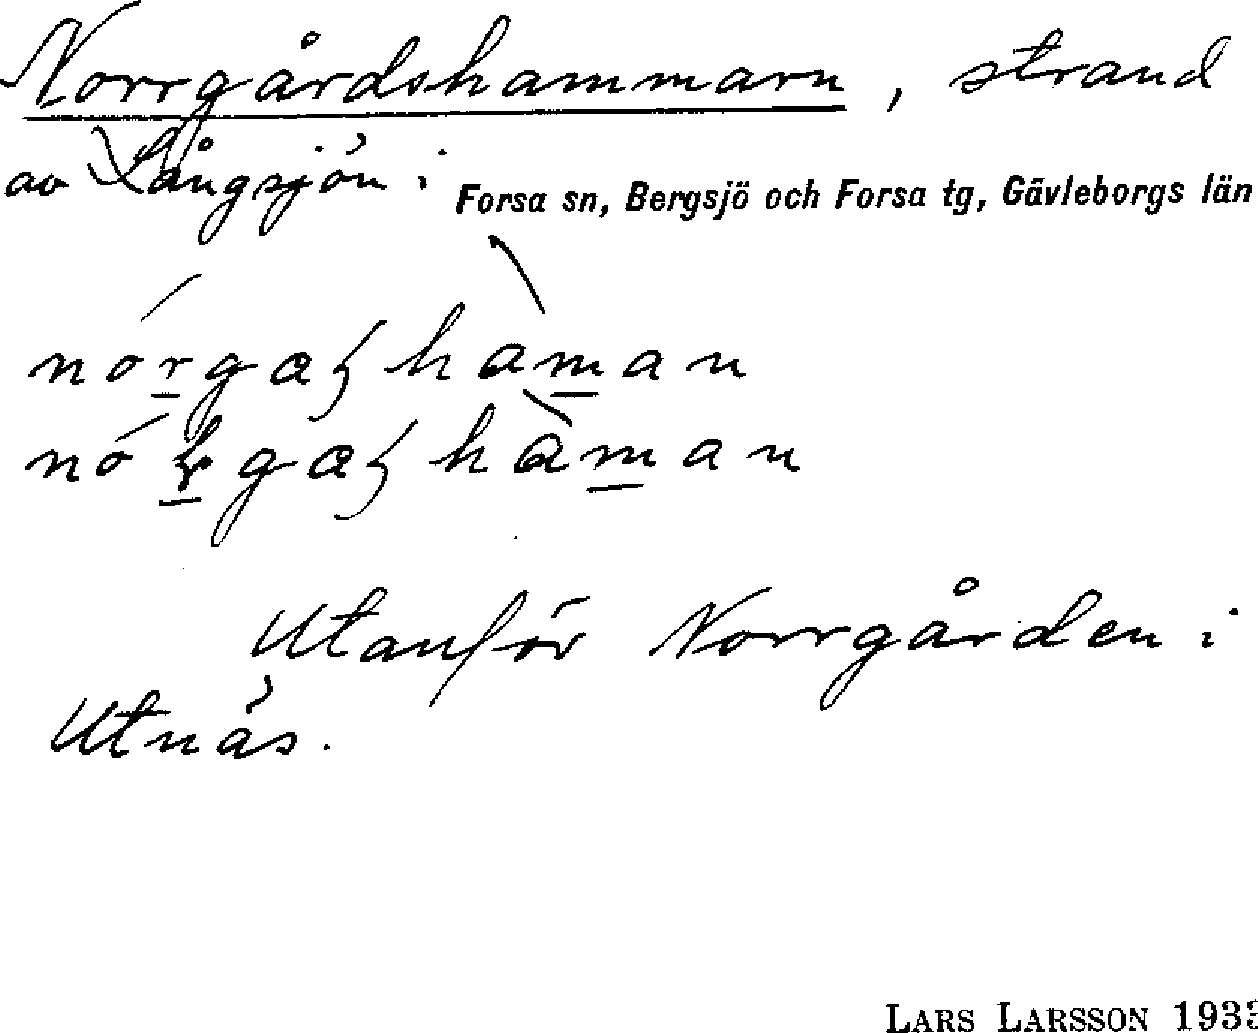 Norrgårdshammarn, strand
av Långsjön i Forsa sn, Bergsjö och Forsa tg, Gävleborgs län
Utanför Norrgården i
Utnäs.
LARS LARSSON